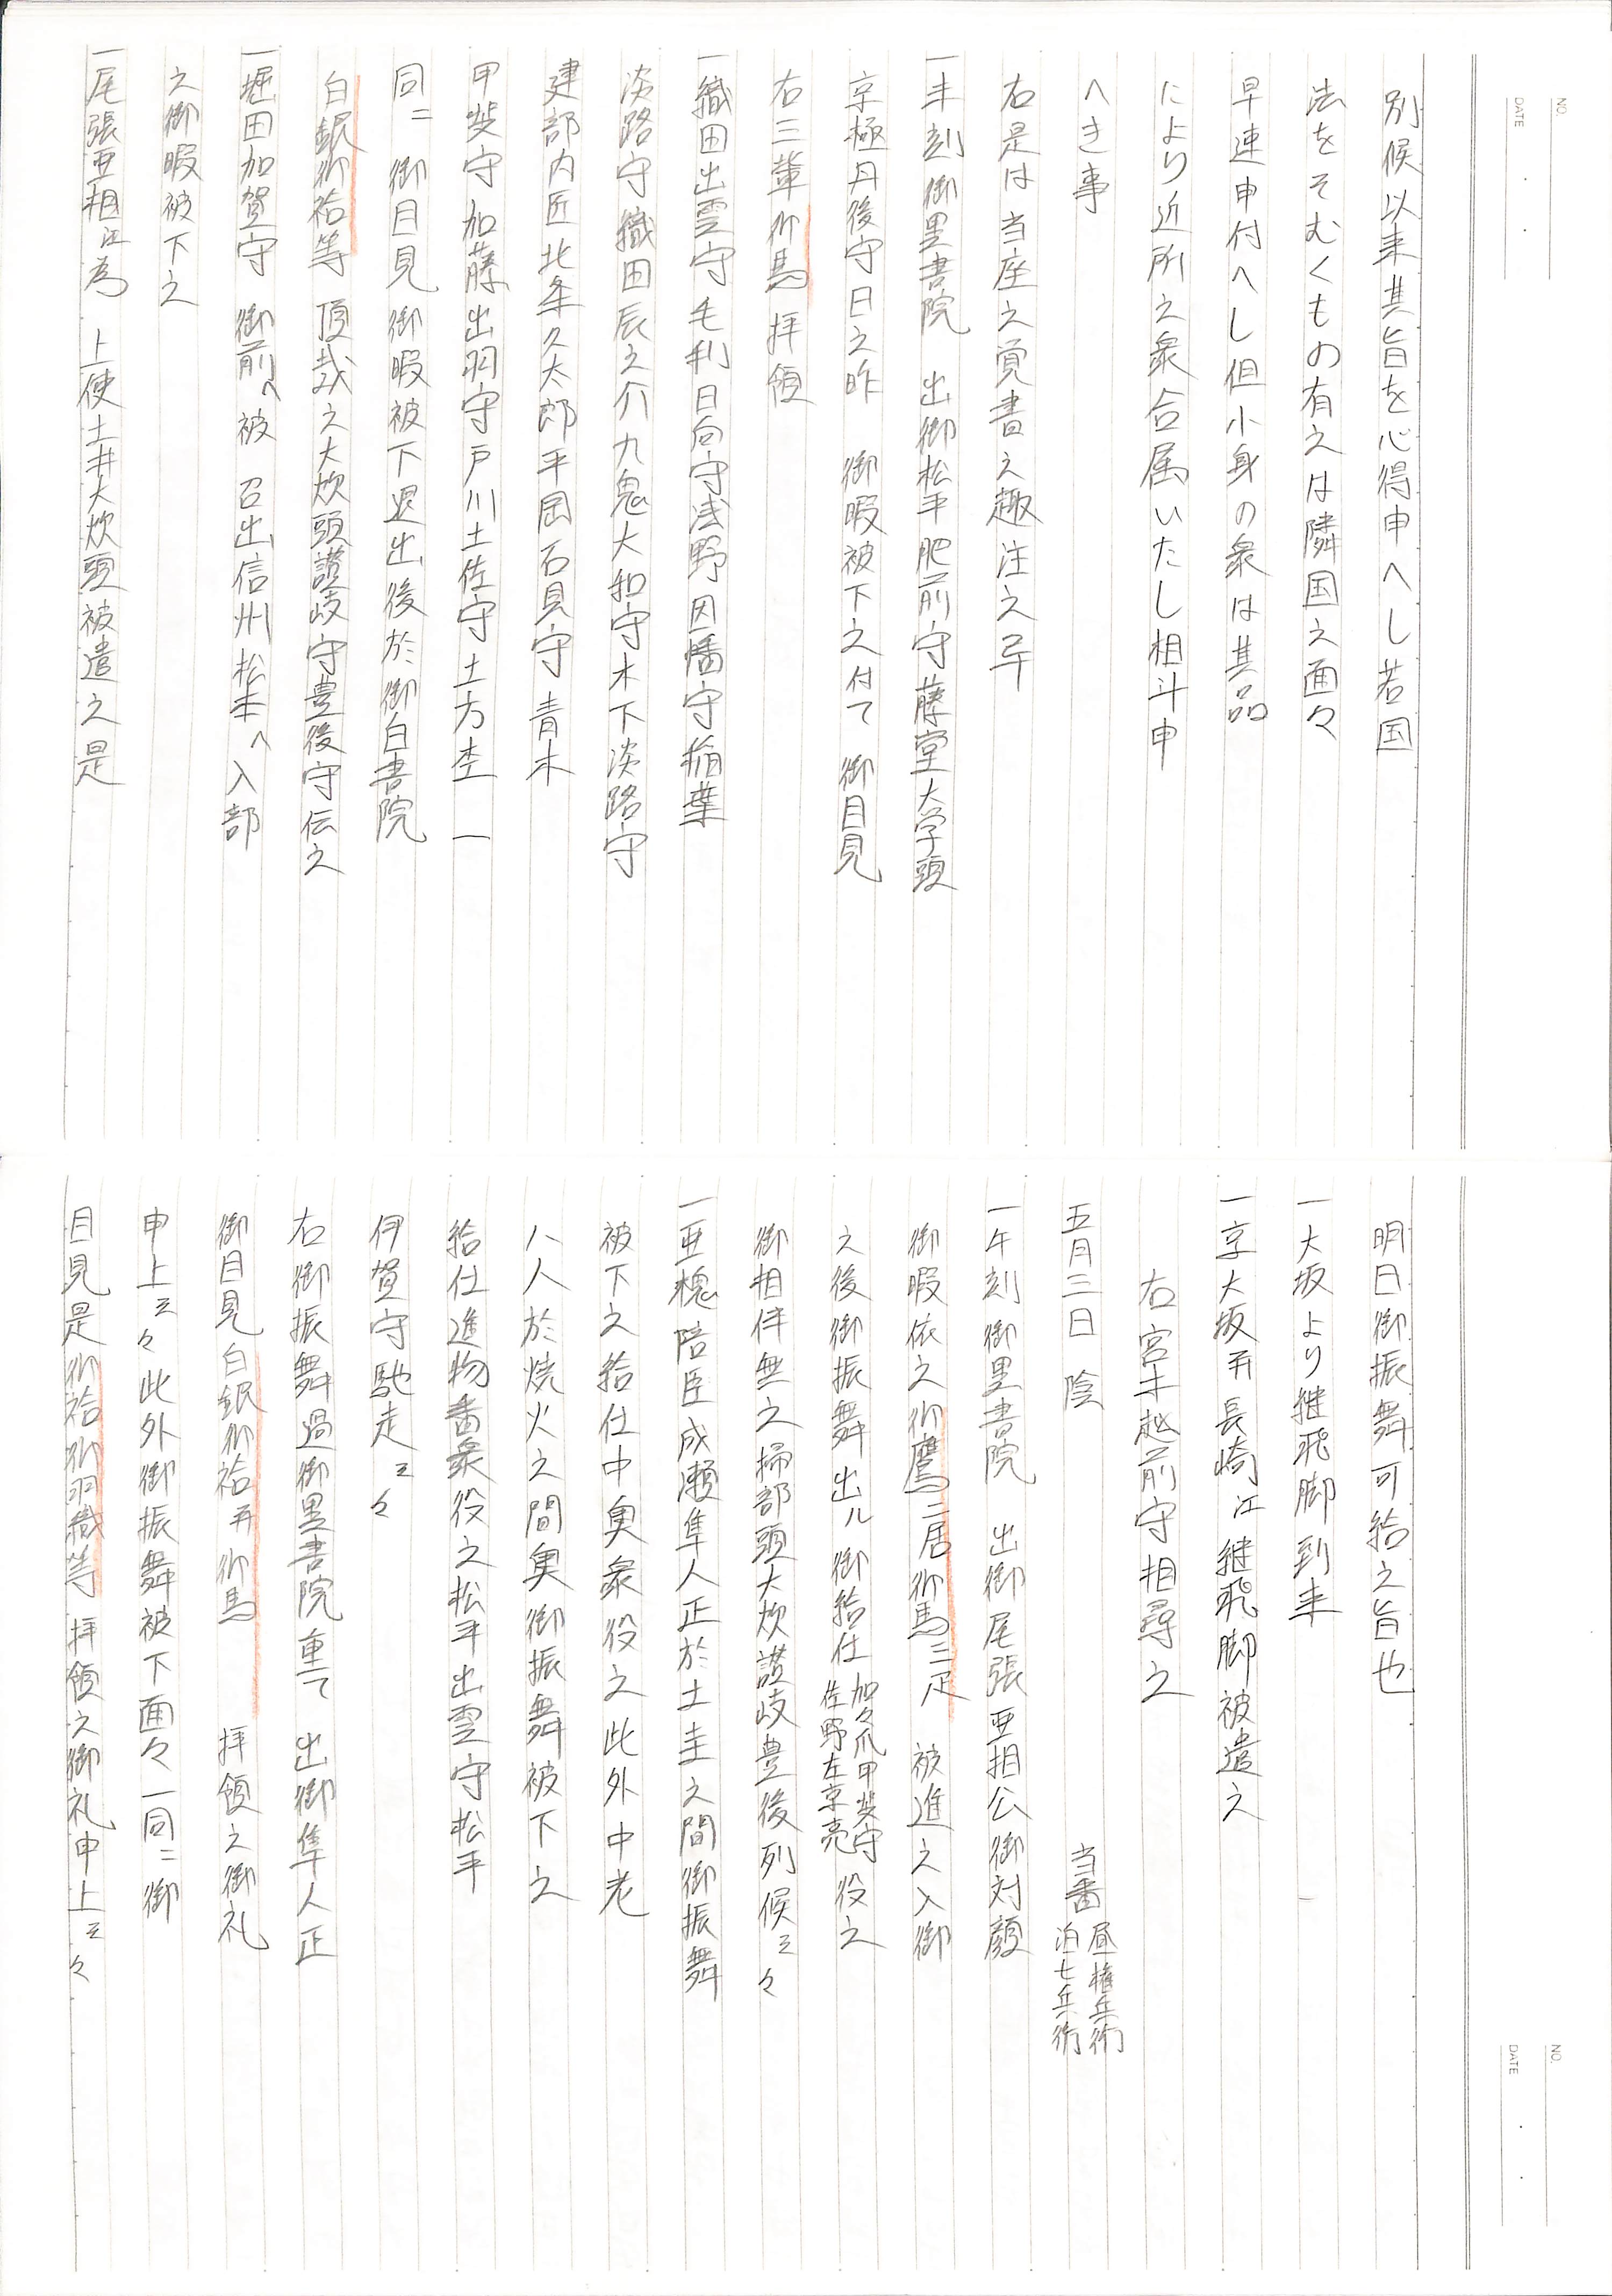 NO.
DATE
別候以来其旨を心得申へし若国
法をそむくもの有之は隣国之面々
早速申付へし但小身の衆は其品
により近所之衆合属いたし相斗申
へき事
右是は当座之覚書之趣注之早
一未刻御黒書院 出御松平肥前守藤堂大学頭
京極丹後守日之昨 御暇被下之付て 御目見
右三輩御馬 拝領
一織田出雲守毛利日向守浅野因幡守稲葉
淡路守織田辰之介九鬼大和守木下淡路守
建部内匠北条久太郎平岡石見守青木
甲斐守加藤出羽守戸川土佐守土方杢一
同ニ 御目見御暇被下退出後於御白書院
白銀御袷等頂戴之大炊頭讃岐守豊後守伝之
一堀田加賀守 御前へ被 召出信州松本へ入部
之御暇被下之
一尾張亜相江為 上使土井大炊頭被遣之是
NO.
DATE
明日御振舞可給之旨也
一大坂より継飛脚到来
一京大坂并長崎江継飛脚被遣之
右宮本越前守相尋之
五月三日 陰 当番 昼権兵衛 泊七兵衛
一午刻御黒書院 出御尾張亜相公御対顔
御暇依之御鷹二居御馬三疋 被進之入御
之後御振舞出ル御給仕 加々爪甲斐守 佐野左京亮 役之
御相伴無之掃部頭大炊讃岐豊後列候云々
一亜槐陪臣成瀬隼人正於土圭之間御振舞
被下之給仕中奥衆役之此外中老
八人於焼火之間奥御振舞被下之
給仕進物番衆役之松平出雲守松平
伊賀守馳走云々
右御振舞過御黒書院重て 出御隼人正
御目見白銀御袷并御馬 拝領之御礼
申上云々此外御振舞被下面々一同ニ御
目見是御袷御羽織等拝領之御礼申上云々